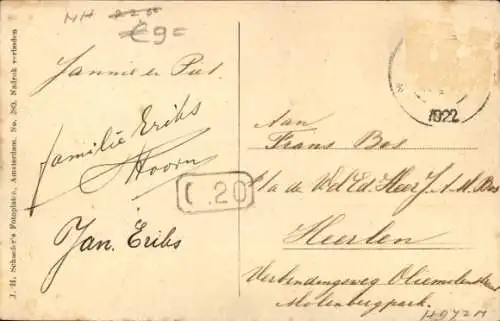 NH 22 50
€9=
J. H. Schaefer's Fotoplaten, Amsterdam. No. 380. Nadruk verboden
Jannie en Piet.
familie Eriks
Hoorn
Jan. Eriks
1922
C.20
Aan
Frans Bos
p/a de Wel Ed. Heer J. A. H. Bos
Heerlen
Verbindingsweg Oliemolenstraat
Molenbergpark.